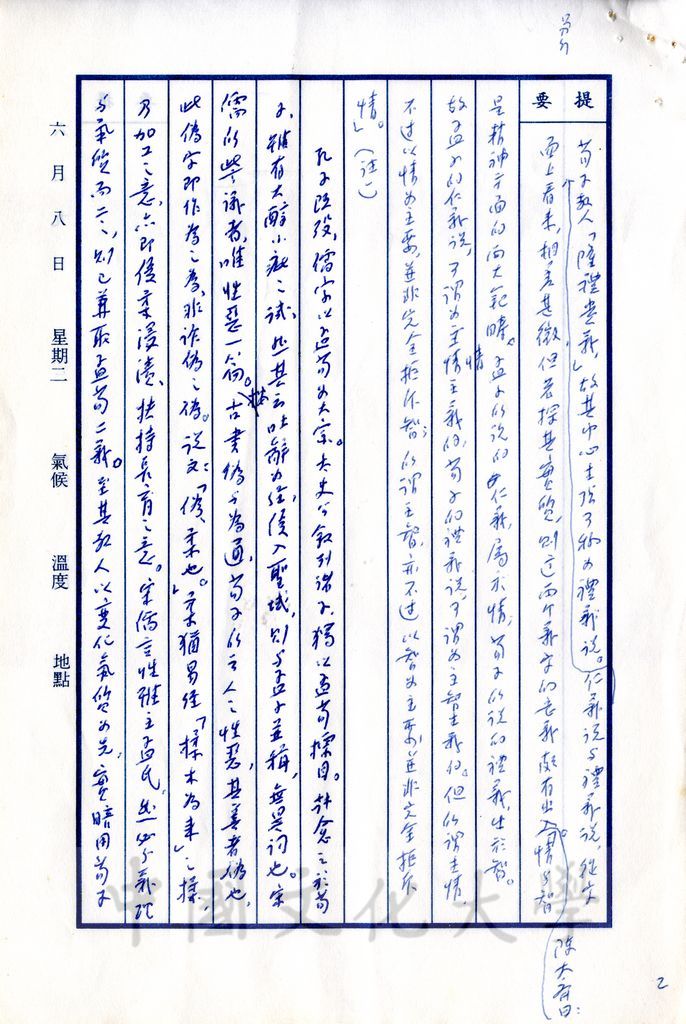 提要
荀子教人「隆禮貴義」故其中心主張可稱為禮義說。仁義說与禮義說，從文
面上看来，相差甚微，但若探其實質，則這兩个義字的意義頗有出入。情与智
陳大齊曰：
是精神方面的两大範疇。孟子所說的仁義，屬於情，荀子所說的禮義，出於智。
故孟子的仁義說，可謂為主情主義的，荀子的禮義說，可謂為主智主義的。但所謂主情
情
不过以情為主要，並非完全排斥智；所謂主智，亦不过以智為主要，並非完全排斥
情」。（註一）
孔子既歿，儒家以孟荀為大宗。太史公敘列諸子，獨以孟荀標目。韓愈之於荀
子，雖有大醇小疵之譏，然其云吐辭為經，優入聖域，則与孟子並稱，無異詞也。宋
儒所訾議者，唯性惡一篇。古書偽与為通，荀子所云人之性惡，其善者偽也，
此偽字即作為之為，非詐偽之偽。説文：「偽，柔也。」柔猶易經「揉木為耒」之揉
乃加工之意，亦即優柔浸漬，扶持長育之意。宋儒言性雖主孟氏，然必与義理
与氣質而二之，則已兼取孟荀二義。至其教人以變化氣質為先，實暗用荀子
六月八日 星期二 氣候 溫度 地點
中國文化大學
2